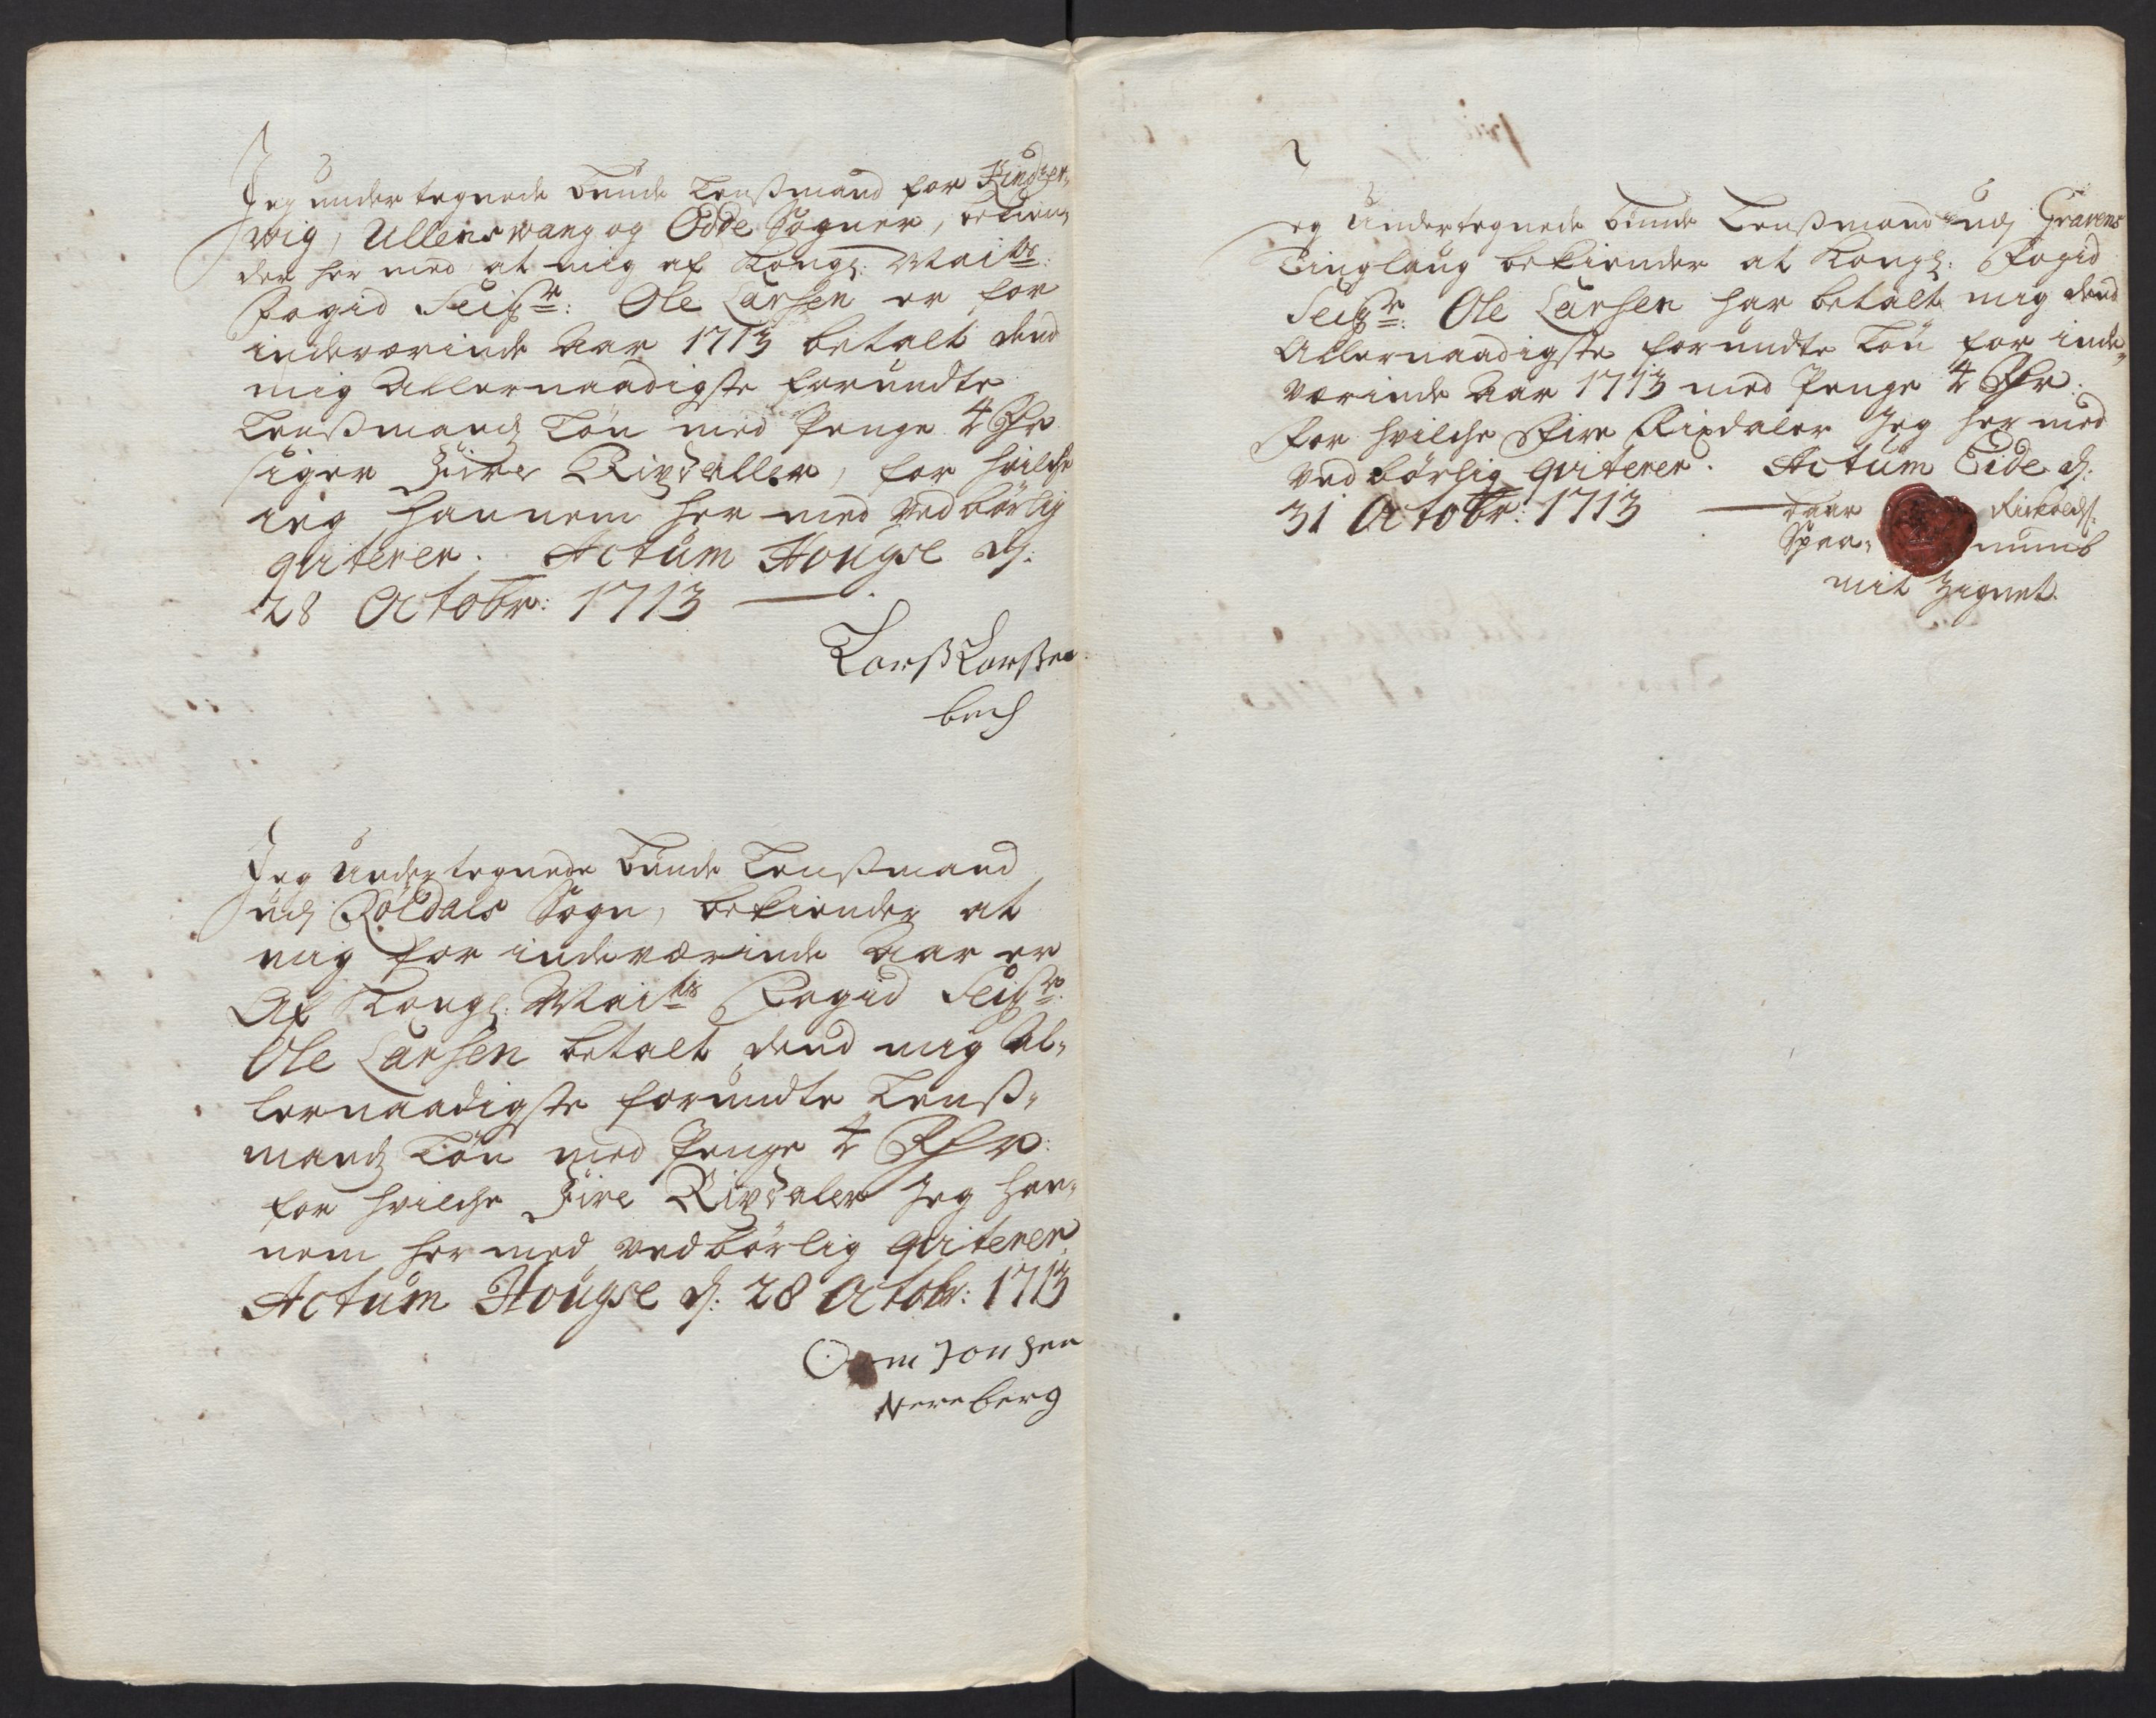 Jeg under tegnede bunde Lenßmand for Kindzer,,
wig, Ullenswang og Odde Sogner, bekien,,
der her med at mig af Kongl: Maits:
Fogid Seigr: Ole Larsen er for
indeværende Aar 1713 betalt dend
mig Allernaadigste forundte
Lenßmandz Løn med Penge 4 Rdr
siger Fire Rixdaller, for hvilche
ieg hannem her med ved børlig
qviterer. Actum Hougse d:
28 Octobr: 1713
Larß Larßen
Jeg Undertegnede bunde Lenßmand
udj Röldals Sogn, bekiender at
mig for indeværende Aar er
Af Kongl: Maits Fogid Seigr:
Ole Larsen betalt dend mig Al,,
lernaadigste forundte Lenß,,
mandz Løn med Penge 4 Rdr:
for hvilche Fire Rixdaler Jeg han,,
nem her med vedbörlig qviterer
Actum Hougse d: 28 Octobr: 1713
Jonsen
Nereberg
Jeg Undertegnede bunde Lenßmand udj Gravens
Tinglaug bekiender at Kongl: Fogid
Seigr: Ole Larsen har betalt mig dend
Allernaadigste forundte Løn for inde,,
værende Aar 1713 med Penge 4 Rdr:
for hvilche Fire Rixdaler Jeg her med
vedbörlig qviterer. Actum Eide d:
31 Octobr: 1713
mit Zignet.